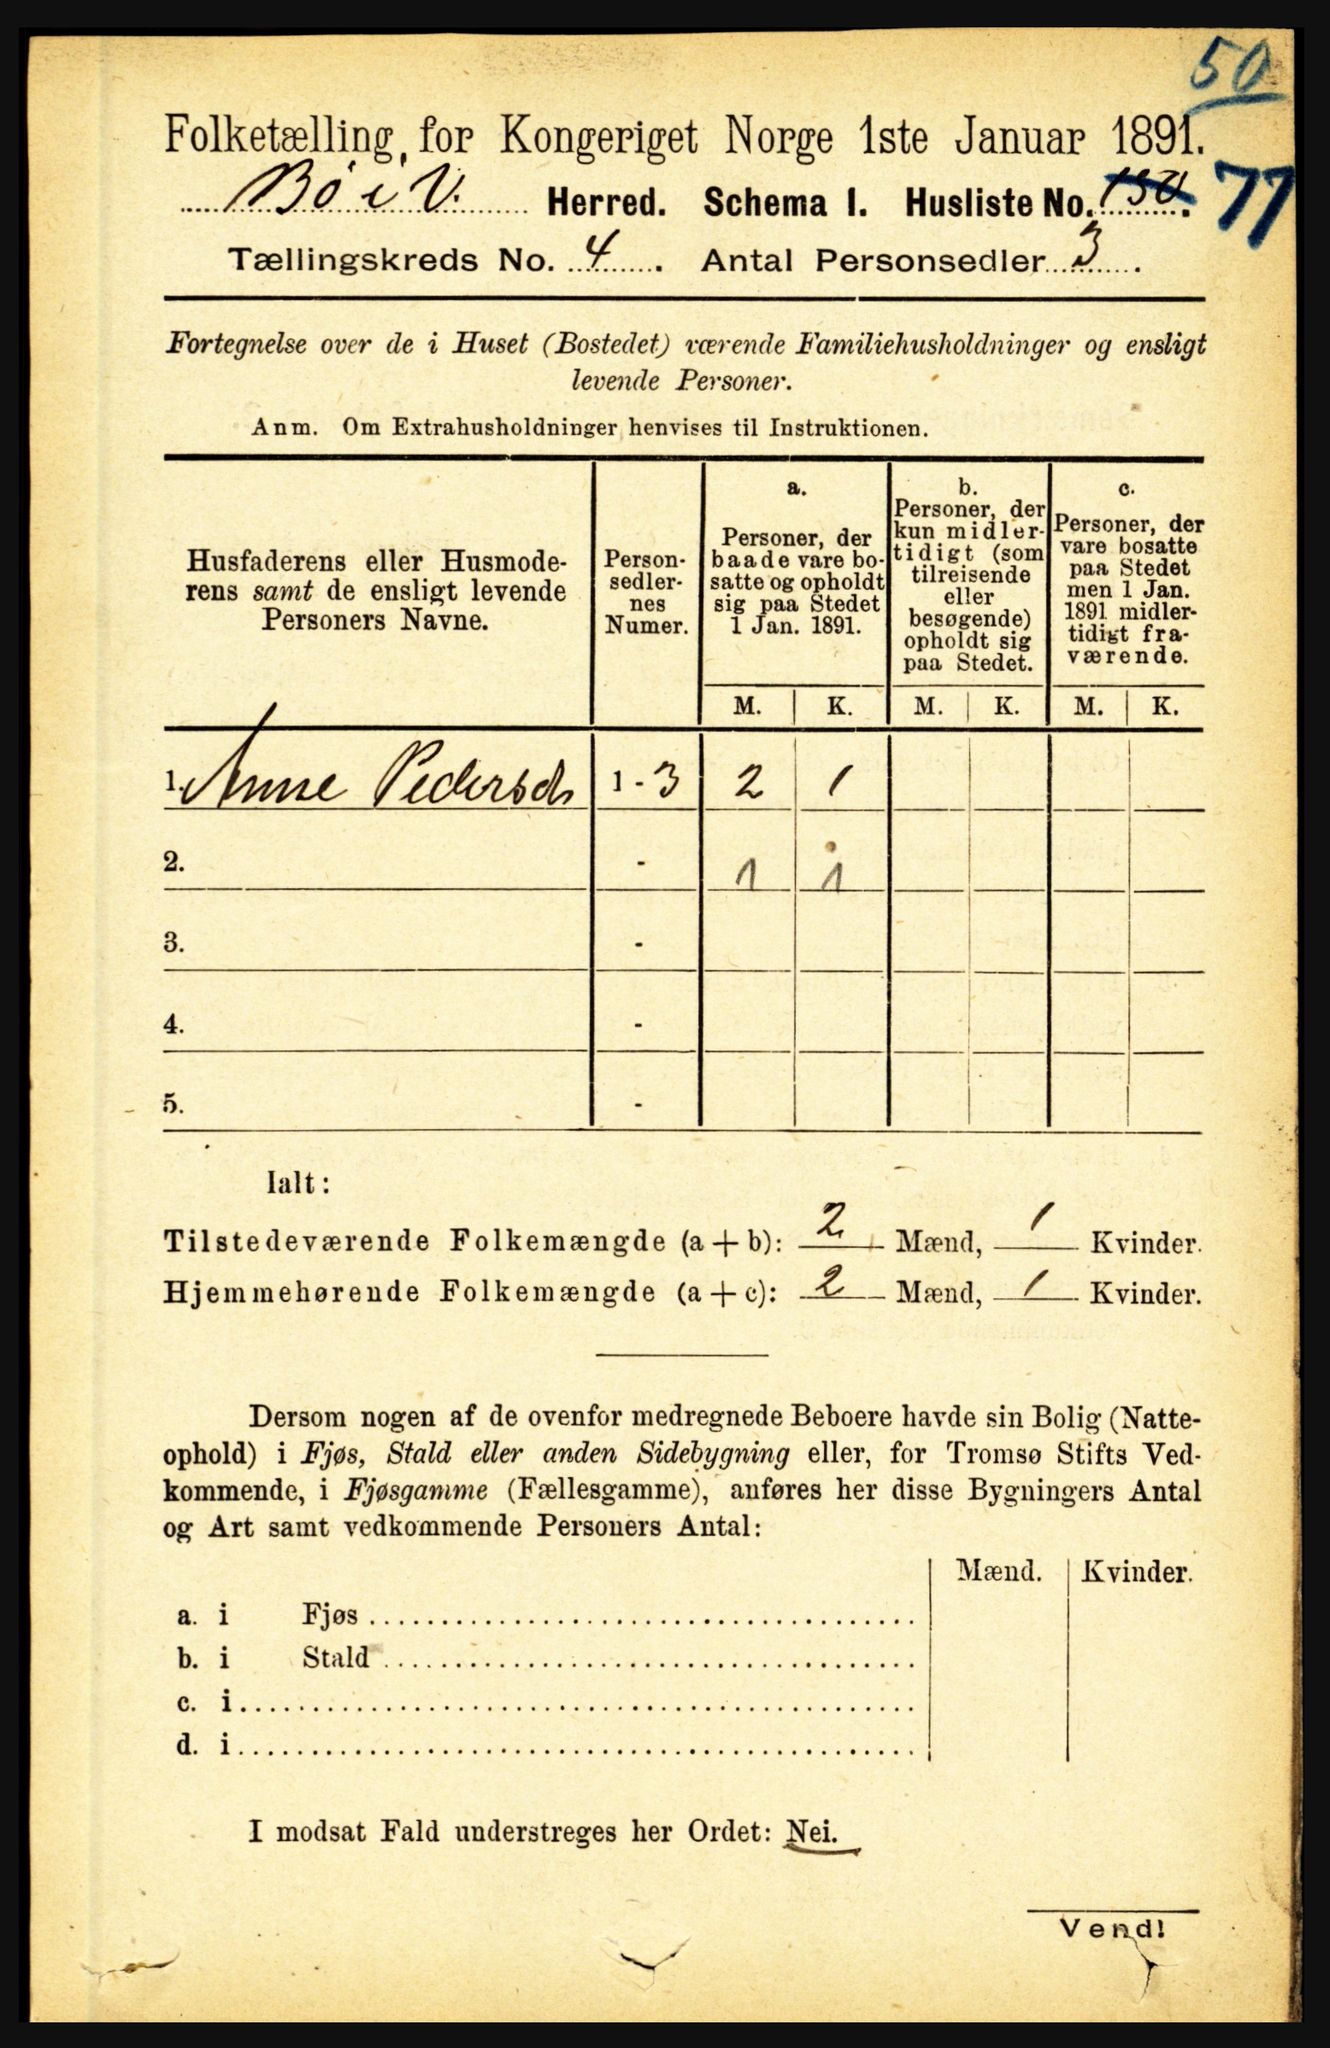 50
Folketælling for Kongeriget Norge 1ste Januar 1891.
Bö i V. Herred. Schema I. Husliste No. 77
Tællingskreds No. 4. Antal Personsedler 3.
Fortegnelse over de i Huset (Bostedet) værende Familiehusholdninger og ensligt
levende Personer.
Anm. Om Extrahusholdninger henvises til Instruktionen.
Husfaderens eller Husmode-
rens samt de ensligt levende
Personers Navne.
Person-
sedler-
nes
Numer.
a.
Personer, der
baade vare bo-
satte og opholdt
sig paa Stedet
1 Jan. 1891.
b.
Personer, der
kun midler-
tidigt (som
tilreisende
eller
besøgende)
opholdt sig
paa Stedet.
c.
Personer, der
vare bosatte
paa Stedet
men 1 Jan.
1891 midler-
tidigt fra-
værende.
M. K. M. K. M. K.
1. Anne Pedersd 1 - 3 2 1
2. - 1 1
3. -
4. -
5. -
Ialt:
Tilstedeværende Folkemængde (a + b): 2 Mænd, 1 Kvinder.
Hjemmehørende Folkemængde (a + c): 2 Mænd, 1 Kvinder.
Dersom nogen af de ovenfor medregnede Beboere havde sin Bolig (Natte-
ophold) i Fjøs, Stald eller anden Sidebygning eller, for Tromsø Stifts Ved-
kommende, i Fjøsgamme (Fællesgamme), anføres her disse Bygningers Antal
og Art samt vedkommende Personers Antal:
Mænd. Kvinder.
a. i Fjøs
b. i Stald
c. i
d. i
I modsat Fald understreges her Ordet: Nei.
Vend!